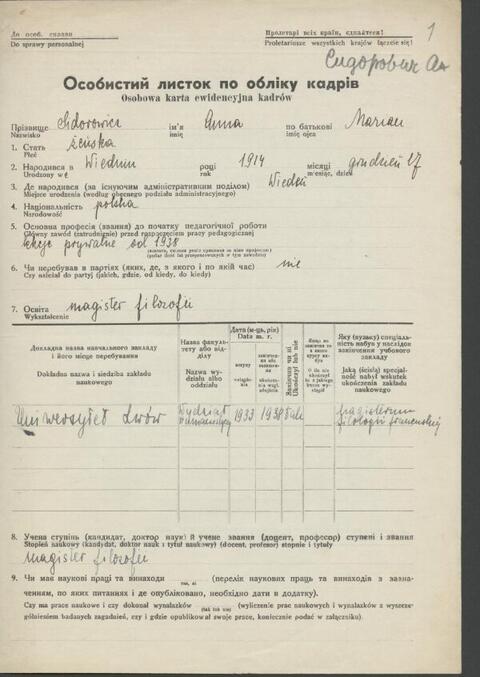 До особ. справи
Do sprawy personalnej
Пролетарі всіх країн, єднайтеся!
Proletariusze wszystkich krajów łączcie się!
1
Сидорович Ан
Особистий листок по обліку кадрів
Osobowa karta ewidencyjna kadrów
Прізвище Sidorowicz ім'я Anna по батькові Marian
Nazwisko imię imię ojca
1. Стать żeńska
Płeć
2. Народився в Wiedniu році 1914 місяці grudzień 17
Urodzony w rok miesiąc, dzień
3. Де народився (за існуючим адміністративним поділом) Wiedeń
Miejsce urodzenia (według obecnego podziału administracyjnego)
4. Національність polska
Narodowość
5. Основна професія (звання) до початку педагогічної роботи
Główny zawód (zatrudnienie) przed rozpoczęciem pracy pedagogicznej
lekcje prywatne od 1938
6. Чи перебував в партіях (яких, де, з якого і по який час) nie
Czy należał do partyj (jakich, gdzie, od kiedy, do kiedy)
7. Освіта magister filozofii
Wykształcenie
Докладна назва навчального закладу і його місце перебування
Dokładna nazwa i siedziba zakładu naukowego
Назва факультету або відділу
Nazwa wydziału albo oddziału
Дата (м-ць, рік)
Data m. r.
вступу
Закінчив чи ні
Ukończył lub nie
Яку (вузьку) спеціальність набув у наслідок закінчення учбового закладу
Jaką (ścisłą) specjalność nabył wskutek ukończenia zakładu naukowego
Uniwersytet Lwów
Wydział humanistyczny
1933
1938
tak
magisterium filologii francuskiej
8. Учена ступінь (кандидат, доктор наук) й учене звання (доцент, професор) ступені і звання
Stopień naukowy (kandydat, doktor nauk i tytuł naukowy) (docent, profesor) stopnie i tytuły
magister filozofii
9. Чи має наукові праці та винаходи (так, ні) (перелік наукових праць та винаходів з зазначенням, по яких питаннях і де опубліковано, необхідно дати в додатку).
Czy ma prace naukowe i czy dokonał wynalazków (tak lub nie) (wyliczenie prac naukowych i wynalazków z wyszczególnieniem badanych zagadnień, czy i gdzie opublikował swoje prace, koniecznie podać w załączniku).